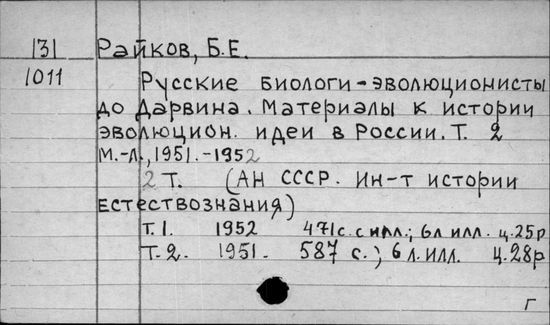 131 Райков, Б.Е.
1011 Русские биологи-эволюционисты
до Дарвина. Материалы к истории
эволюцион. идеи в России. Т. 2
М.-Л., 1951.-1952
2 Т. (АН СССР. Ин-т истории
естествознания)
Т.1. 1952 471 с. с илл.; 6 л илл. ц. 25р
Т.2. 1951. 587 с.; 6 л. илл. ц. 28р
Г